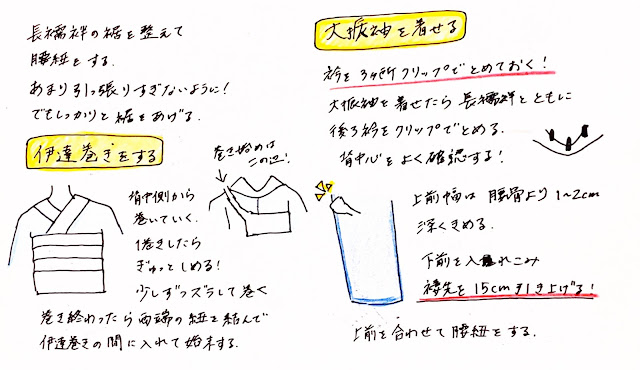 長襦袢の裾を整えて
腰紐をする.
あまり引っ張りすぎないように!
でもしっかりと裾をあげる.
伊達巻きをする
巻き始めは
この辺!
背中側から
巻いていく.
1巻きしたら
ぎゅっとしめる!
少しずつズラして巻く
巻き終わったら両端の紐を結んで
伊達巻きの間に入れて始末する.
大振袖を着せる
衿を3ヶ所クリップでとめておく!
大振袖を着せたら長襦袢とともに
後ろ衿をクリップでとめる.
背中心をよく確認する!
上前幅は腰骨より1~2cm
深くきめる.
下前を入れこみ
褄先を15cm引き上げる!
上前を合わせて腰紐をする.